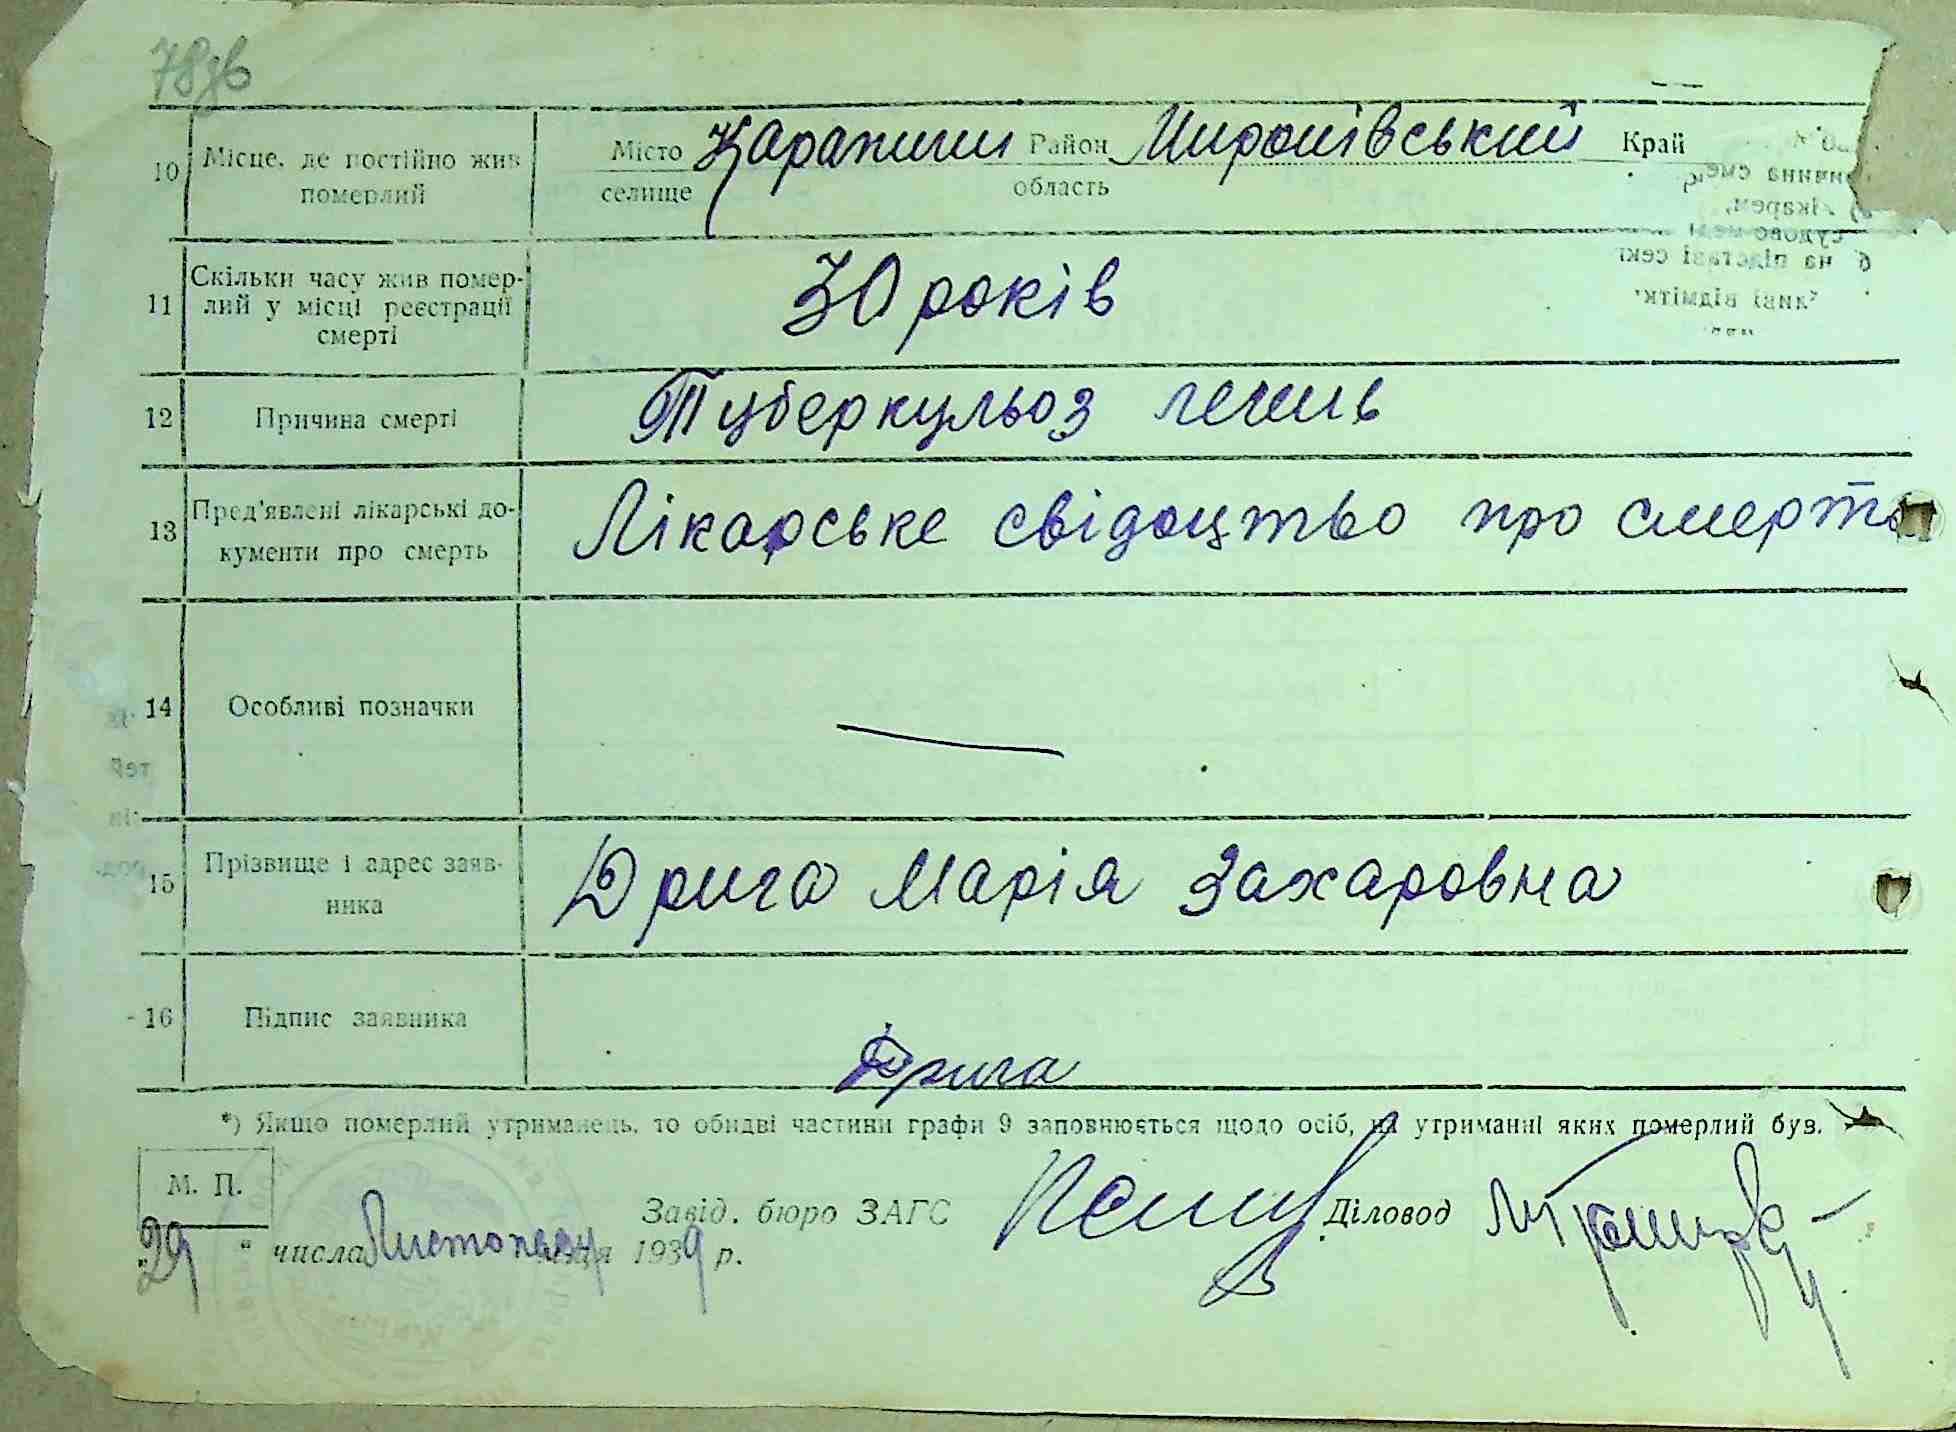 78зв
10 Місце, де постійно жив Місто Карапиши Район Миронівський Край
померлий селище область
11 Скільки часу жив помер-
лий у місці реєстрації
смерті
30 років
12 Причина смерті Туберкульоз легень
13 Пред'явлені лікарські до-
кументи про смерть
Лікарське свідоцтво про смерть
14 Особливі позначки —
15 Прізвище і адрес заяв-
ника
Дрига Марія Захаровна
16 Підпис заявника Дрига
*) Якщо померлий утриманець, то обидві частини графи 9 заповнюється щодо осіб, на утриманні яких померлий був.
М. П.
Завід. бюро ЗАГС Діловод
„29“ числа Листопада 1939 р.